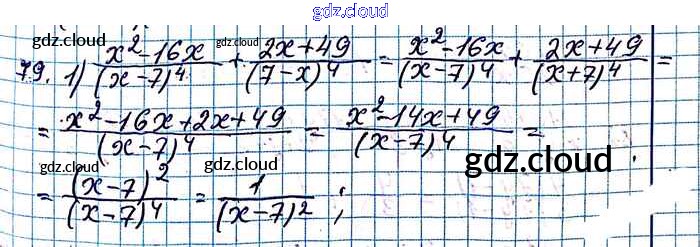 gdz.cloud
79. 1) \frac{x^2-16x}{(x-7)^4} + \frac{2x+49}{(7-x)^4} = \frac{x^2-16x}{(x-7)^4} + \frac{2x+49}{(x+7)^4} =
gdz.cloud gdz.cloud gdz.cloud
= \frac{x^2-16x+2x+49}{(x-7)^4} = \frac{x^2-14x+49}{(x-7)^4} =
gdz.cloud gdz.cloud gdz.cloud
= \frac{(x-7)^2}{(x-7)^4} = \frac{1}{(x-7)^2} ;